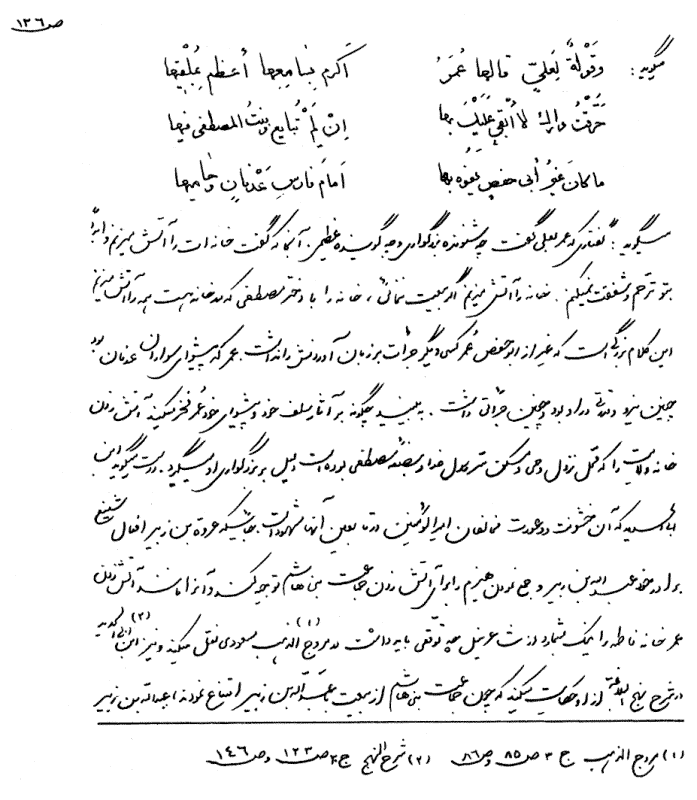 ص١٣٦
میگوید: وَقَوْلَةٌ لِعَلیٍّ قالَها عُمَرُ اَکرِم بِسامِعِها أعظِم بِمُلْقِیها
حَرَّقْتُ دارَكَ لا اُبْقِي عَلَیْكَ بِها اِنْ لَمْ تُبایِع وبِنْتُ المصطفی فیها
ما کانَ غیرُ أبی حفصٍ یَفُوهُ بِها اَمامَ فارِسِ عَدْنانٍ وحامِیها
میگوید: گفتاری که عمر بعلی گفت چه شنونده بزرگواری و چه گوینده عظیمی. آنجا که گفت خانه ات را آتش میزنم و ابداً
بتو ترحم و شفقت نمیکنم. خانه را آتش میزنم اگر بیعت ننمائی، خانه را با دختر مصطفی که در خانه است همه را آتش میزنم
این کلام بزرگی است که غیر از ابوحفص عُمر کسی دیگر جرأت بر زبان آوردنش را نداشت. عمر که پیشوای سواران عدنان بود
چنین نیرو و قدرتی در او بود و چنین جرأتی داشت. ببینید چگونه بر آثار سلف خود و پیشوای خود عُمر فخر میکنند آتش زدن
خانه ولایت را که محل نزول وحی و مسکن سر رسول خدا و بضعهٔ مصطفی بوده است دلیل بر بزرگواری او میگیرد. درست میگوید این
که آن خشونت در مخالفان امیرالمؤمنین و تابعین آنها مشهود است. چنانکه عروة بن زبیر افعال شنیع
برادر خود عبدالله بن زبیر و جمع نمودن هیزم را برای آتش زدن جماعت بنی هاشم توجیه میکند و آنرا مانند آتش زدن
عمر خانه فاطمه را یک شمارد در مروج الذهب (١) مسعودی نقل میکند و نیز ابن ابی الحدید (٢)
در شرح نهج البلاغه از او حکایت میکند که چون جماعت بنی هاشم از بیعت با عبدالله بن زبیر امتناع نمودند، عبدالله بن زبیر
(١) مروج الذهب ج ٣ ص ٨٥ و ص ٨٦ (٢) شرح النهج ج ٢ ص ١٢٣ و ص ١٤٦